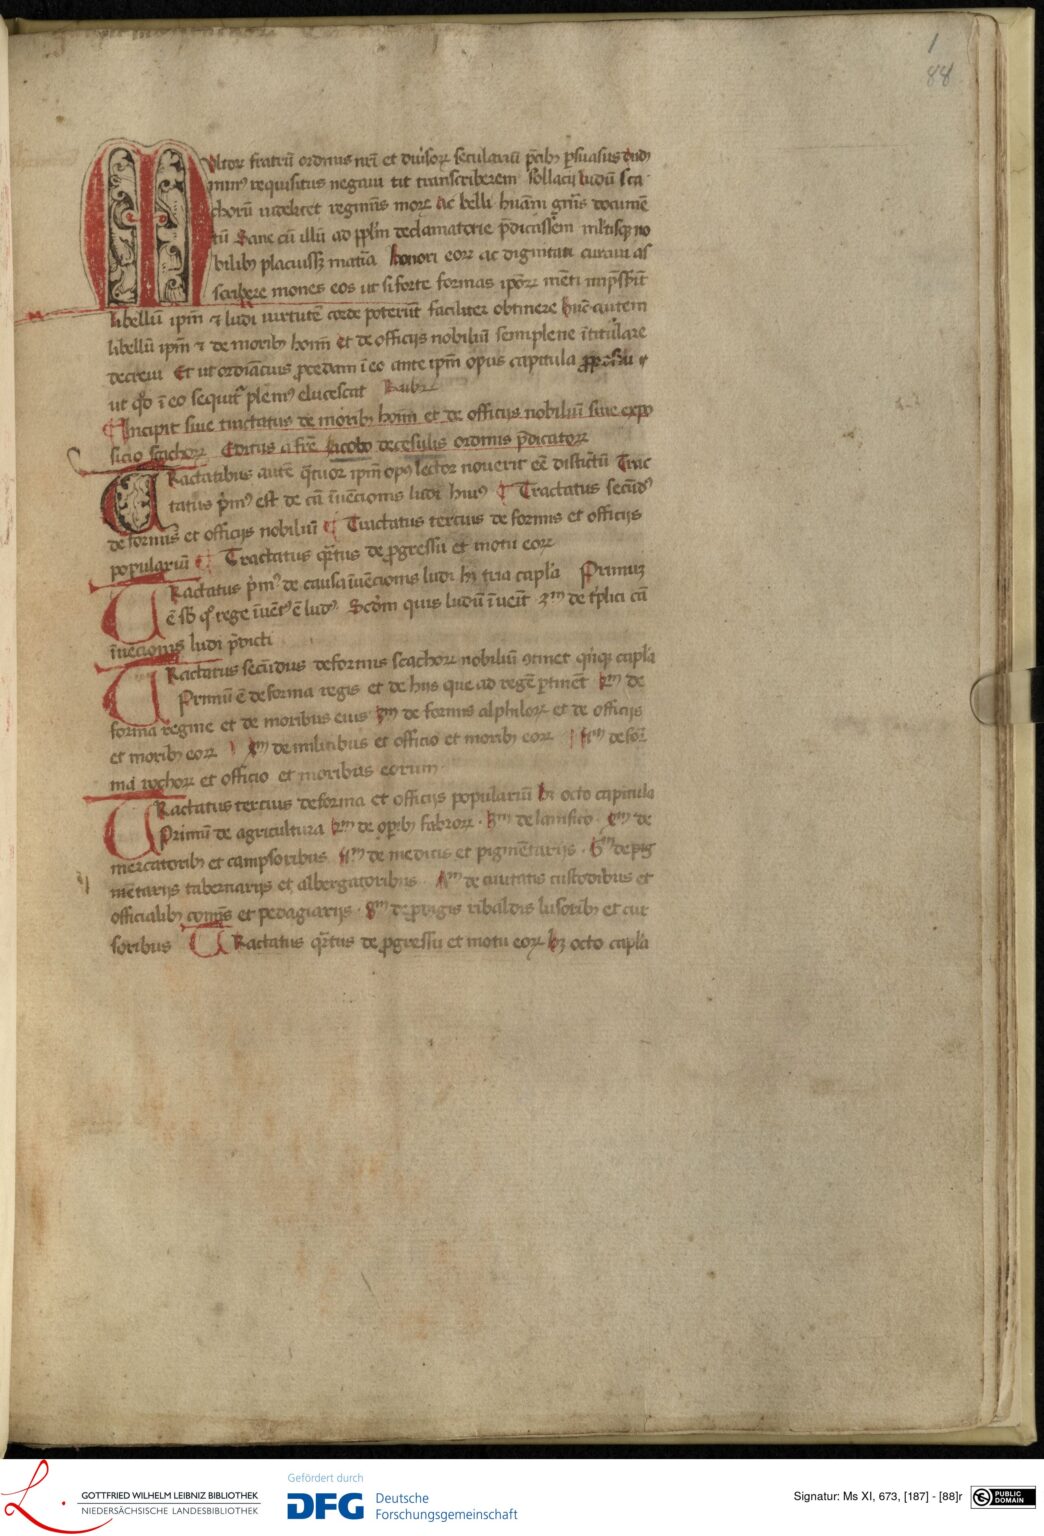 1
88
Multor fratrū ordinis nrī et diūsorꝝ seculariū p̄cibꝫ p̄suasus dudū
requisitus negavi ut transcriberem sollacii ludū sca
chorū videlicet regiminis morꝝ ac belli hūani gn̄is docume
tū Sane cū illū ad pplm̄ declamatorie p̄dicassem mltisqꝫ no
bilibꝫ placuissꝫ mat̄ia honori eorꝝ ac dignitati curavi as
scribere monēs eos ut si forte formas ip̄orꝝ mēti imp̄sserīt
libellū ip̄m ⁊ ludi virtutē corde poterūt faciliter obtinere hūc autem
libellū ip̄m ⁊ de moribꝫ homī et de officijs nobiliū semiplene ītitulare
decrevi Et ut ordiātius procedam ī eo ante ip̄m opus capitula
ut qd̄ ī eo sequit᷑ plenīꝰ elucescat Rubꝝ
Incipit sive tractatus de moribꝫ homī et de officijs nobiliū sive expo
sicio scachorꝝ Editus a fr̄e Iacobo de cesulis ordinis p̄dicatorꝝ
Ractatibus autē q̄tuor ip̄m opꝰ lector noverit eē distictū Trac
tatus p̄mꝰ est de cā īvēcionis ludi huiꝰ Tractatus secūdꝰ
de formis et officijs nobiliū Tractatus tercius de formis et officijs
populariū Tractatus qr̄tus de ꝓgressu et motu eorꝝ
Tractatus p̄mꝰ de causa īvēcionis ludi hꝫ tria capl̄a Primuꝫ
ē sb̄ qͦ rege īvētꝰ ē ludꝰ Scdm̄ quis ludū īveīt 3m de t̄plici cā
īvēcionis ludi p̄dicti
Tractatus secūdus de formis scachorꝝ nobiliū ꝯtinet qn̄qꝫ capl̄a
Primū ē de forma regis et de hijs que ad regē ꝑtinēt 2m de
forma regine et de moribus eius 3m de formis alphilorꝝ et de officijs
et moribꝫ eorꝝ 4m de militibus et officio et moribꝫ eorꝝ 5m de for
ma rochorꝝ et officio et moribus eorum
Tractatus tercius de forma et officijs populariū hꝫ octo capitula
Primū de agricultura 2m de oꝑibꝫ fabrorꝝ 3m de lanificio 4m de
mercatoribꝫ et campsoribus 5m de medicis et pigmētarijs 6m de pig
mētarijs tabernarijs et albergatoribus 7m de civitatis custodibus et
officialibꝫ comūs et pedagiarijs 8m de ꝓdigis ribaldis lusoribꝫ et cur
soribus Tractatus qr̄tus de ꝓgressu et motu eorꝝ hꝫ octo capl̄a
GOTTFRIED WILHELM LEIBNIZ BIBLIOTHEK
NIEDERSÄCHSISCHE LANDESBIBLIOTHEK
Gefördert durch
DFG Deutsche
Forschungsgemeinschaft
Signatur: Ms XI, 673, [187] - [88]r
PUBLIC
DOMAIN